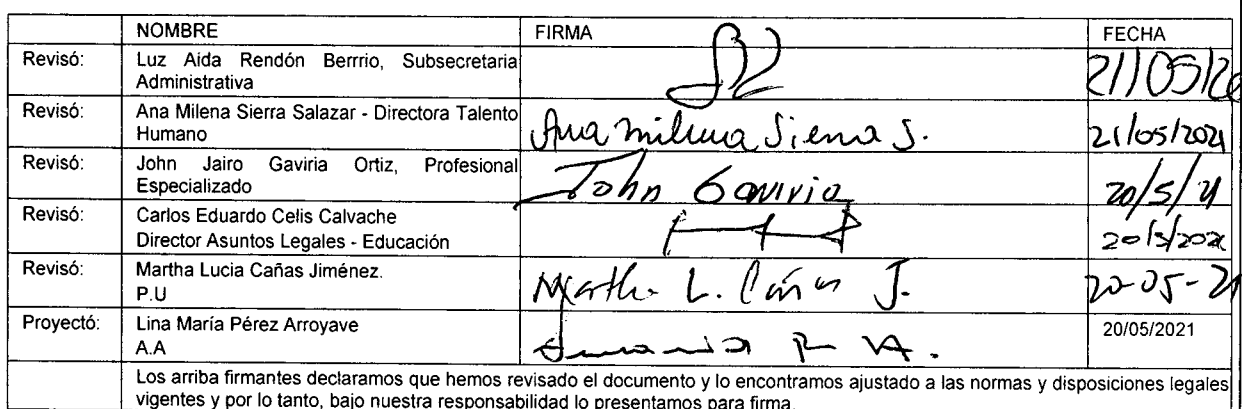 NOMBRE FIRMA FECHA
Revisó: Luz Aida Rendón Berrrio, Subsecretaria
Administrativa 21/05/2
Revisó: Ana Milena Sierra Salazar - Directora Talento
Humano Ana milena Sierra S. 21/05/2021
Revisó: John Jairo Gaviria Ortiz, Profesional
Especializado John Gaviria 20/5/21
Revisó: Carlos Eduardo Celis Calvache
Director Asuntos Legales - Educación 20/5/2021
Revisó: Martha Lucia Cañas Jiménez.
P.U Martha L. Cañas J. 20-05-21
Proyectó: Lina María Pérez Arroyave 20/05/2021
A.A
Los arriba firmantes declaramos que hemos revisado el documento y lo encontramos ajustado a las normas y disposiciones legales
vigentes y por lo tanto, bajo nuestra responsabilidad lo presentamos para firma.